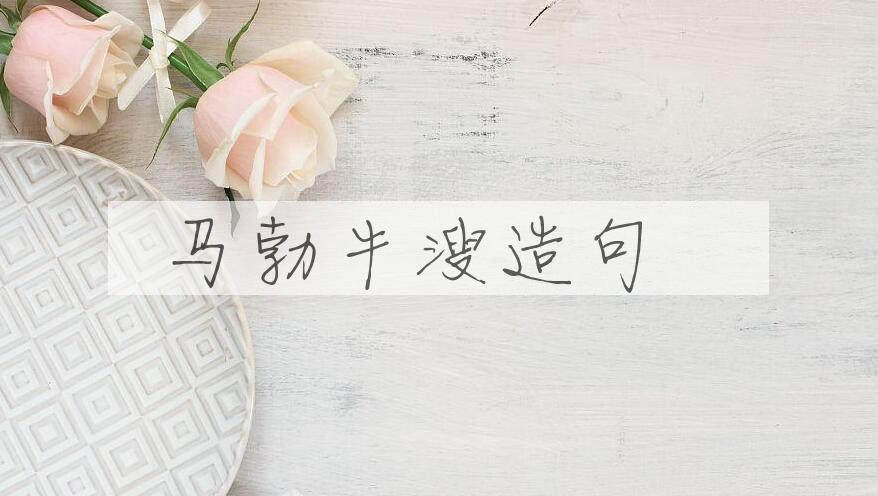 马勃牛溲造句